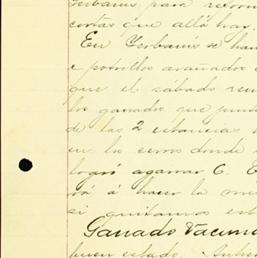 para reform
cortas que allá hay.
En Gerbanis se han
e potrillos arañados
que el sábado reu
los ganados que junta
de las 2 estancias
en los cerros donde
logró agarrar 6. E
rá á hacer la mis
si quitamos est
Ganado Vacuno
buen estado.